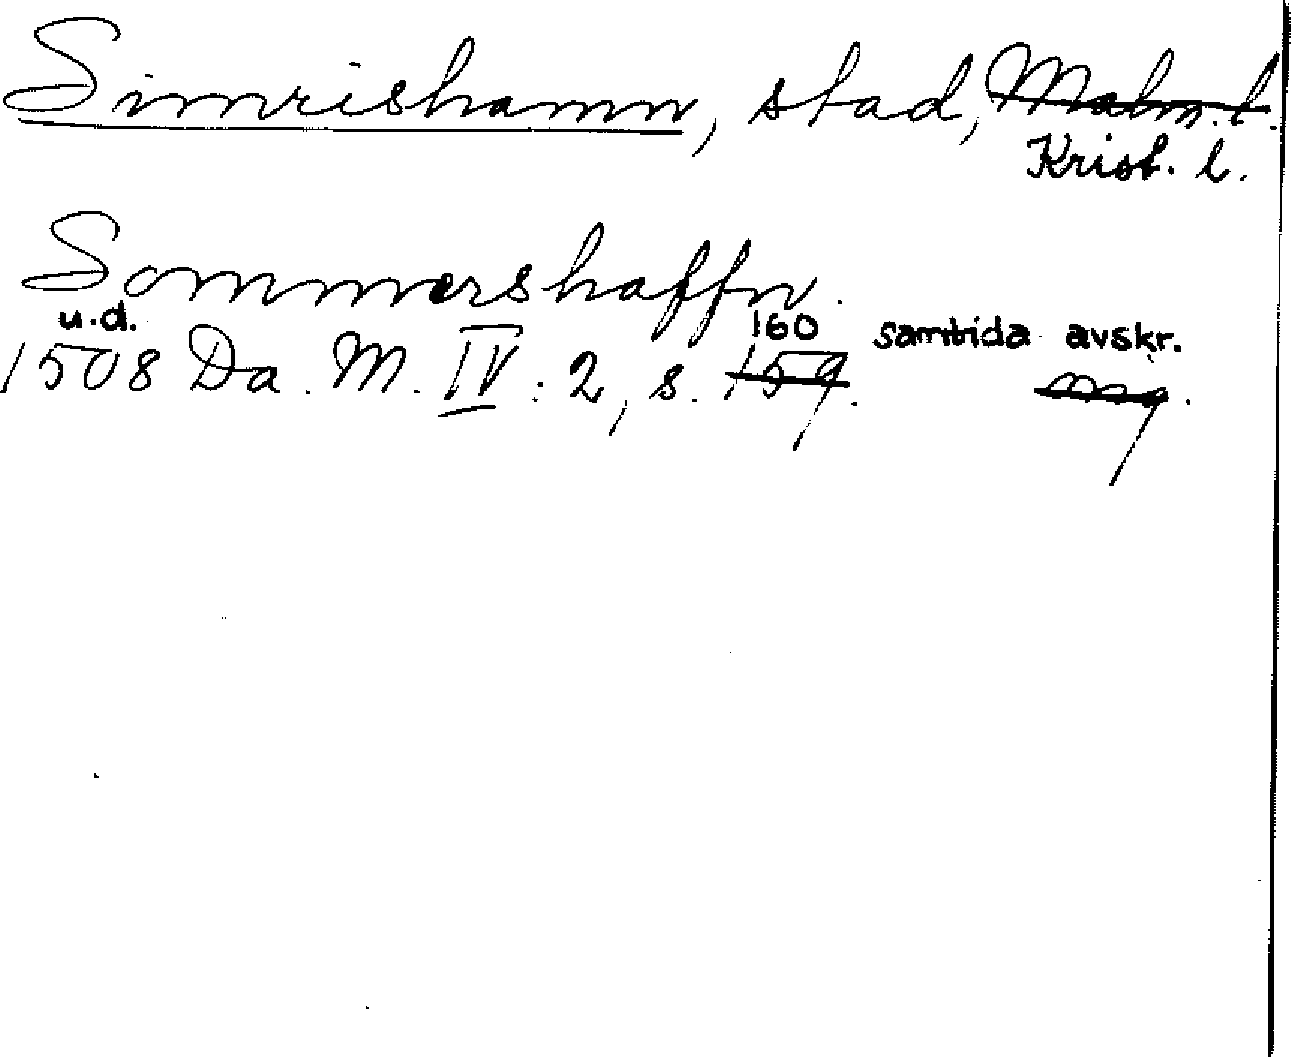 Simrishamn, stad, Malm. l.
Krist. l.
Sommershaffn.
u.d. 160 samtida avskr.
1508 Da. M. IV: 2, s. 159.